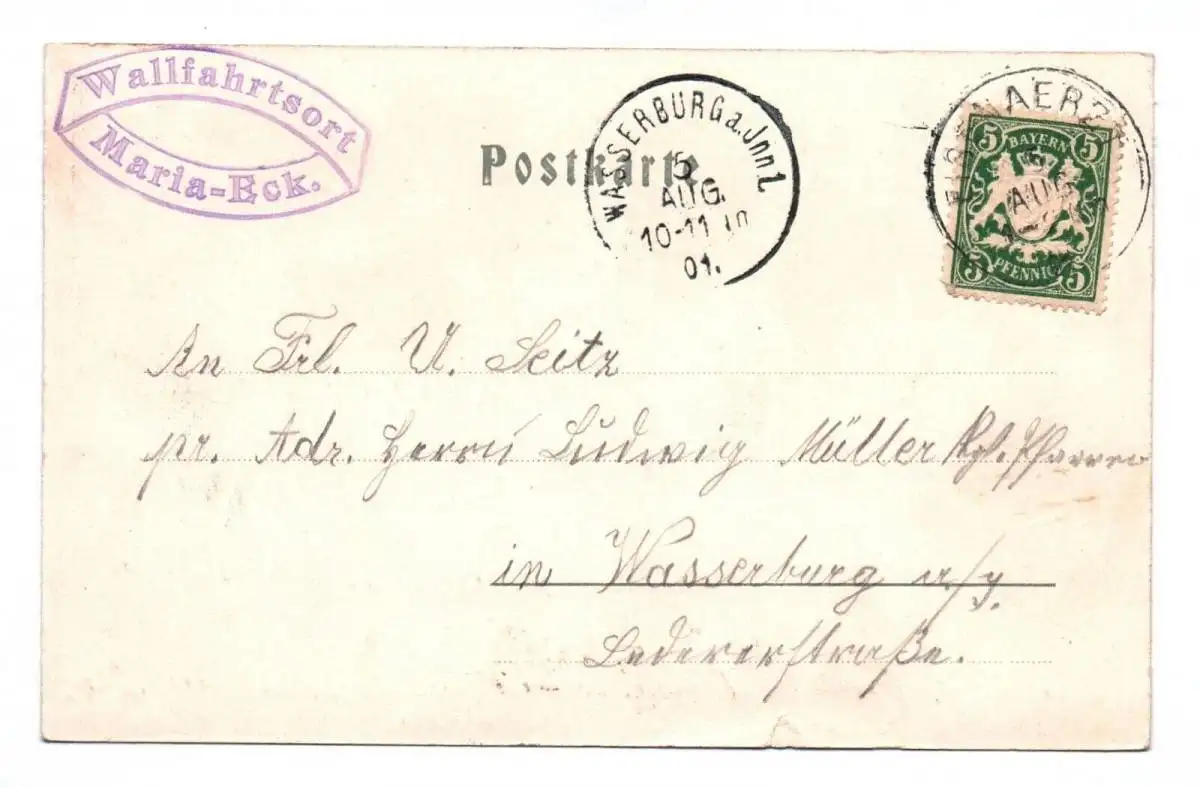 Wallfahrtsort
Maria-Eck.
Postkarte
WASSERBURG a. Jnn 1.
5
AUG.
10-11
01.
5 BAYERN 5
AUG
5 PFENNIG 5
An Frl. U. Seitz
pr. Adr. Herrn Ludwig Müller Kgl. Pfarrer
in Wasserburg a/J.
Ledererstraße.